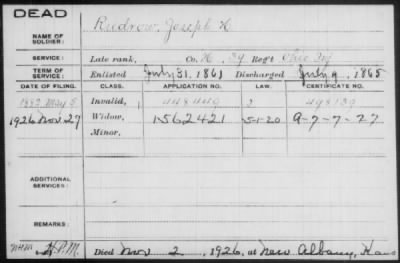 DEAD
NAME OF SOLDIER: Rudrow, Joseph H
SERVICE: Late rank, Co. H, 39 Reg't Ohio Inf
TERM OF SERVICE: Enlisted July 31, 1861 Discharged July 9, 1865
DATE OF FILING. CLASS. APPLICATION NO. LAW. CERTIFICATE NO.
1882 May 5 Invalid, 448449 498139
1926 Nov 27 Widow, 1562421 5-1-20 A-7-7-27
Minor,
ADDITIONAL SERVICES:
REMARKS:
H.P.M. Died Nov 2, 1926, at New Albany, Kans